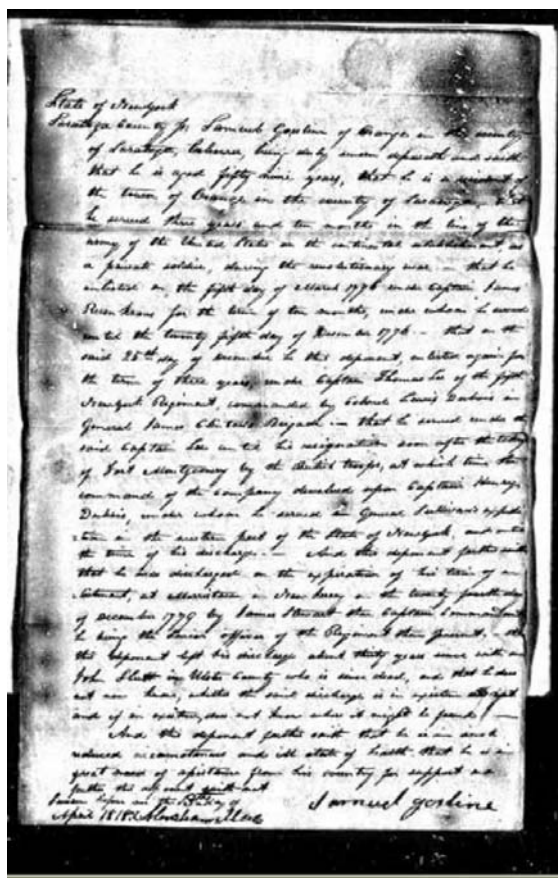 State of Newyork
Saratoga County Ss. Samuel Gosline of Orange in the county
of Saratoga, being duly sworn deposeth and saith
that he is aged fifty nine years, that he is a resident of
the town of Orange in the county of Saratoga, that
he served three years and ten months in the line of the
army of the United States on the continental establishment as
a private soldier, during the revolutionary war — that he
enlisted on the fifth day of March 1776 under Captain James
Rosenkrans for the term of ten months, under whom he served
until the twenty fifth day of December 1776 — that on the
said 25th day of December he this deponent, enlisted again for
the term of three years, under Captain Thomas Lee of the fifth
Newyork Regiment, commanded by Colonel Lewis Dubois in
General James Clinton's Brigade — that he served under the
said Captain Lee until his resignation soon after the taking
of Fort Montgomery by the British troops, at which time the
command of the company devolved upon Captain Henry
Dubois, under whom he served in General Sullivan's expedi
tion in the western part of the State of Newyork, and until
the time of his discharge — And this deponent further saith
that he was discharged on the expiration of his term of en
listment, at Morristown in New Jersey on the twenty fourth day
of December 1779 by James Stewart then Captain Commandant
he being the Senior officer of the Regiment then present, — that
this deponent left his discharge about thirty years since with a
John Slutt in Ulster County who is since dead, and that he does
not now know, whether the said discharge is in existence
and if in existence, does not know where it might be found —
And this deponent further saith that he is in
reduced circumstances and ill state of health, that he is in
great need of assistance from his country for support and
further this deponent saith not
Sworn before me this day of
April 1818. Samuel gosline